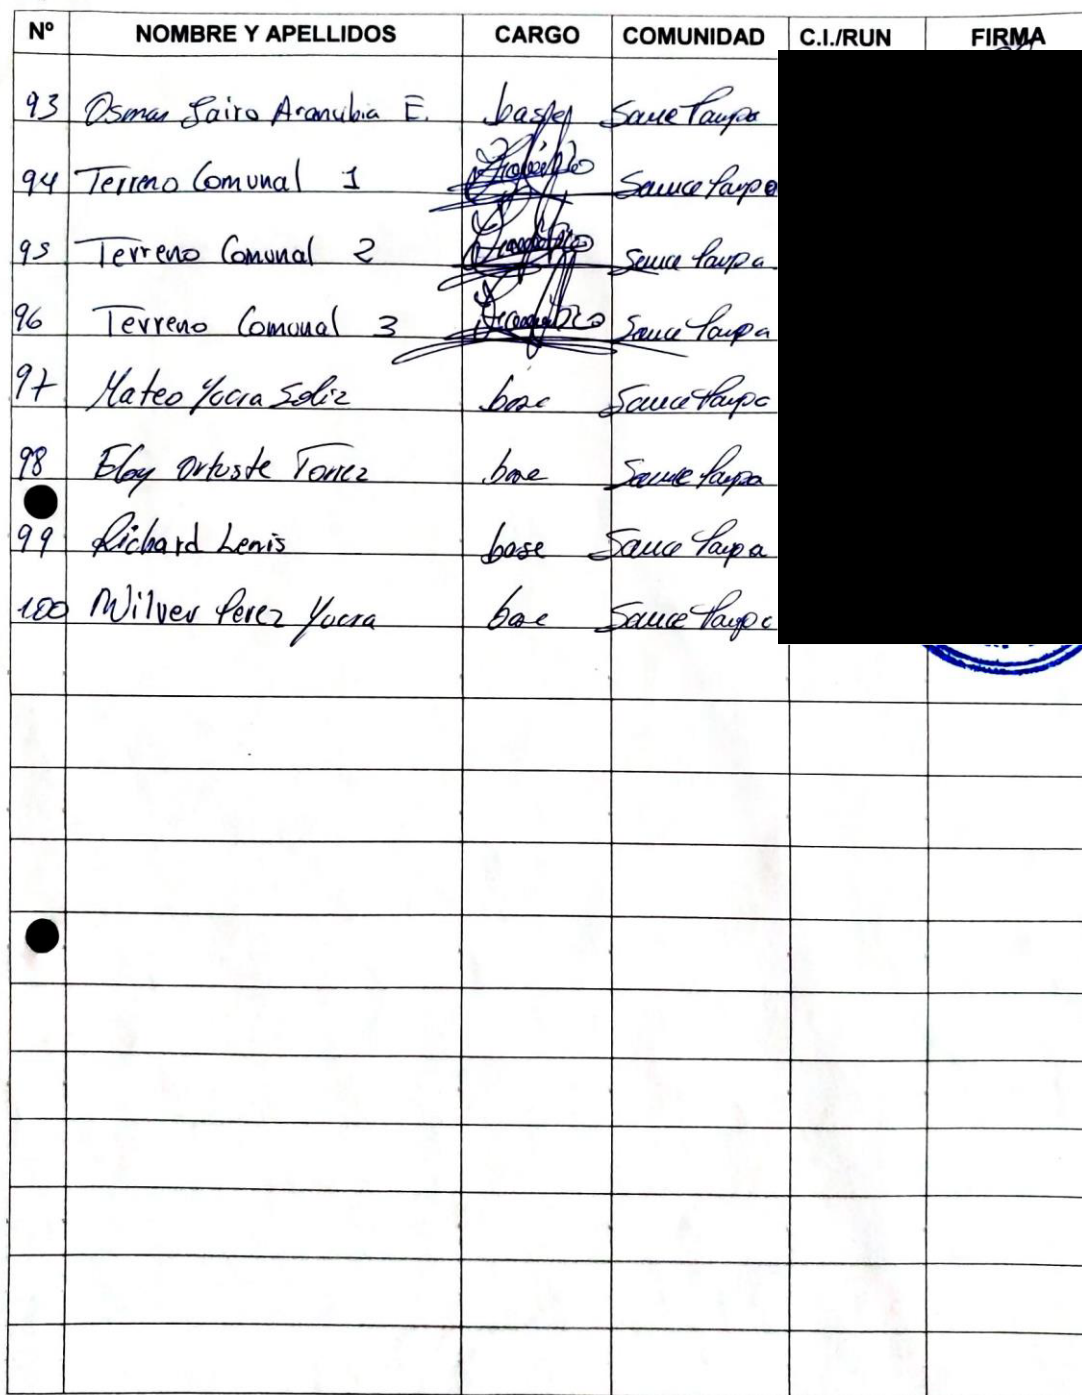 Nº NOMBRE Y APELLIDOS CARGO COMUNIDAD C.I./RUN FIRMA
93 Osmar Jairo Aranubia E. Sauce Pampa
94 Terreno Comunal 1 Sauce Pampa
95 Terreno Comunal 2 Sauce Pampa
96 Terreno Comunal 3 Sauce Pampa
97 Mateo Yucra Soliz base Sauce Pampa
98 Eloy Ortuste Torrez base Sauce Pampa
99 Richard Lenis base Sauce Pampa
100 Wilver Perez Yucra base Sauce Pampa